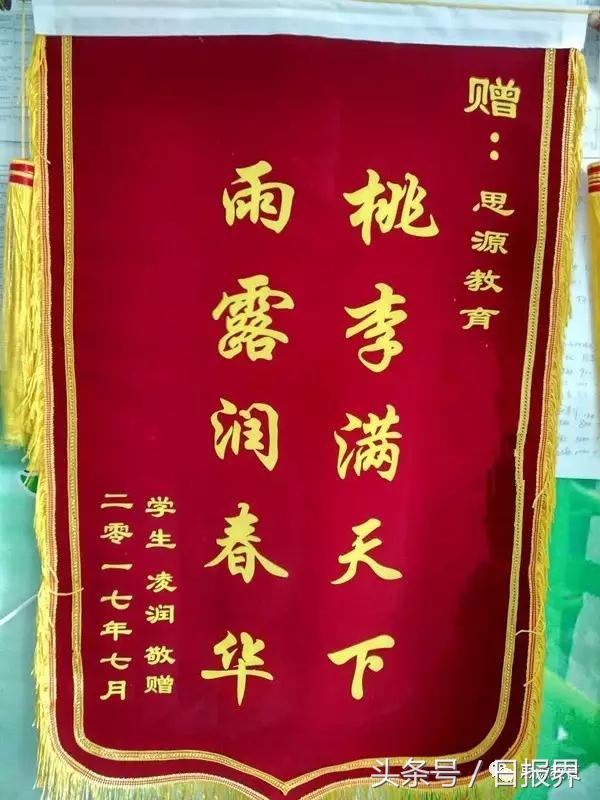 赠：思源教育
桃李满天下
雨露润春华
学生 凌润 敬赠
二零一七年七月
头条号 / 日报界